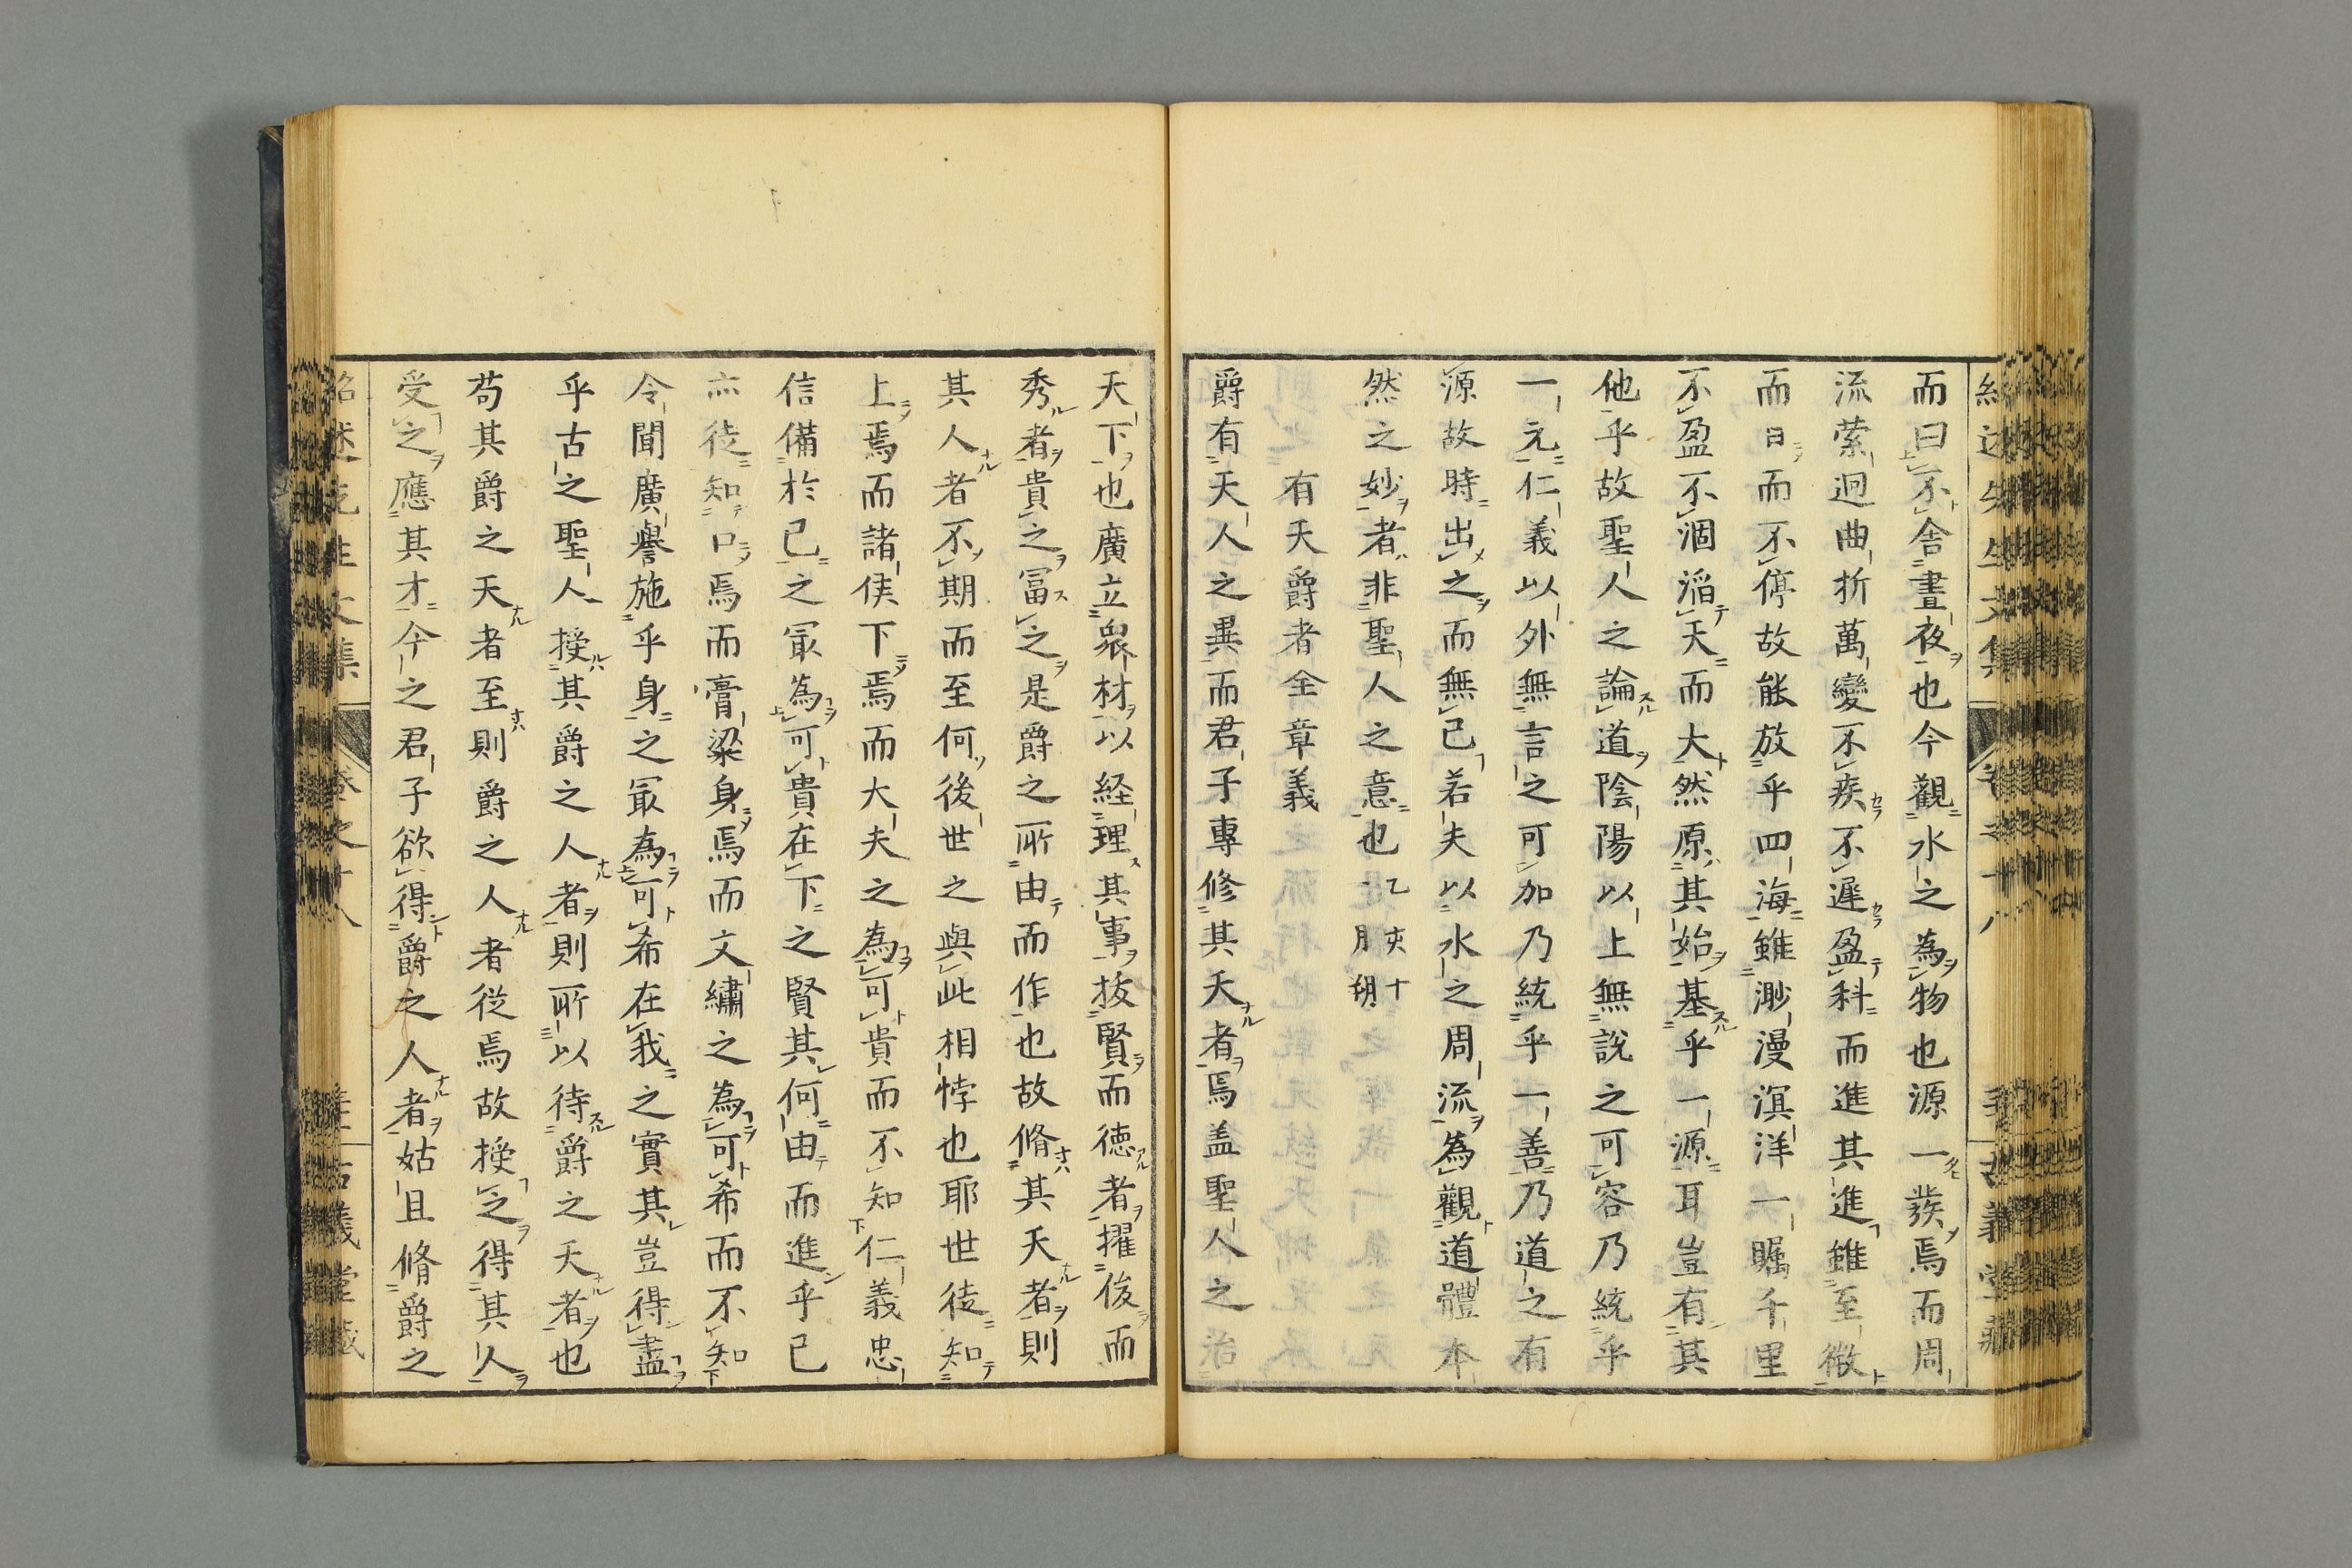 而曰不舎晝夜也今觀水之為物也源一發焉而周
流縈迴曲折萬變不疾不遲盈科而進其進雖至微
而日而不停故能放乎四海雖渺漫溟洋一矚千里
不盈不涸滔天而大然原其始基乎一源耳豈有其
他乎故聖人之論道陰陽以上無説之可容乃統乎
一元仁義以外無言之可加乃統乎一善乃道之有
源故時出之而無已若夫以水之周流為觀道體本
然之妙者非聖人之意也
乙亥十
月朔
有天爵者全章義
爵有天人之異而君子專修其天者焉盖聖人之
天下也廣立衆材以経理其事抜賢而徳者擢俊而
秀者貴之冨之是爵之所由而作也故脩其天者則
其人者不期而至何後世之與此相悖也耶世徒知
上焉而諸侯下焉而大夫之為可貴而不知仁義忠
信備於己之冣為可貴在下之賢其何由而進乎已
亦徒知口焉而膏粱身焉而文繡之為可希而不知
令聞廣譽施乎身之冣為可希在我之實其豈得盡
乎古之聖人授其爵之人者則所以待爵之天者也
苟其爵之天者至則爵之人者從焉故授之得其人
受之應其才今之君子欲得爵之人者姑且脩爵之